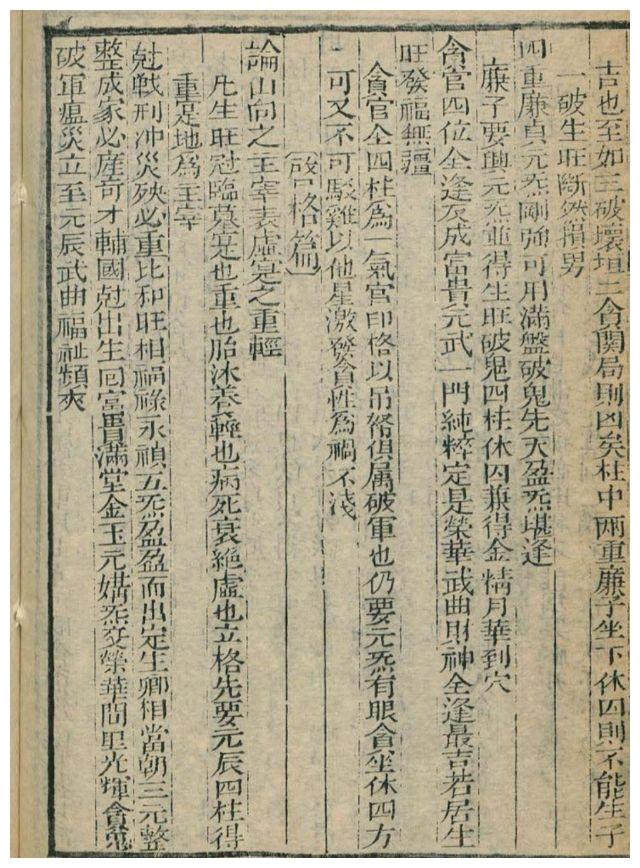 吉也至如三破壞垣二貪関局則凶矣柱中兩重廉子坐下休囚則不能生子
一破生旺斷然損男
四重廉貞元炁剛強可用滿盤破鬼先天盈炁堪逢
廉子要與元炁並得生旺破鬼四柱休囚兼得金精月華到穴
貪官四位全逢反成富貴元武一門純粹定是榮華武曲財神全逢最吉若居生
旺發福無疆
貪官全四柱為一氣官印格以吊脊俱屬破軍也仍要元炁有眼貪坐休囚方
可又不可駁雜以他星激發貪性為禍不淺
啓格篇
論山向之主宰表虛寔之重輕
凡生旺冠臨墓寔也重也胎沐養輕也病死衰絕虛也立格先要元辰四柱得
重寔地為主宰
尅戰刑冲災殃必重比和旺相福祿永禎五炁盈盈而出定生卿相當朝三元整
整成家必產奇才輔國尅出生回富貴滿堂金玉元媾炁交榮華閭里光輝貪鬼
破軍瘟災立至元辰武曲福祉頻來